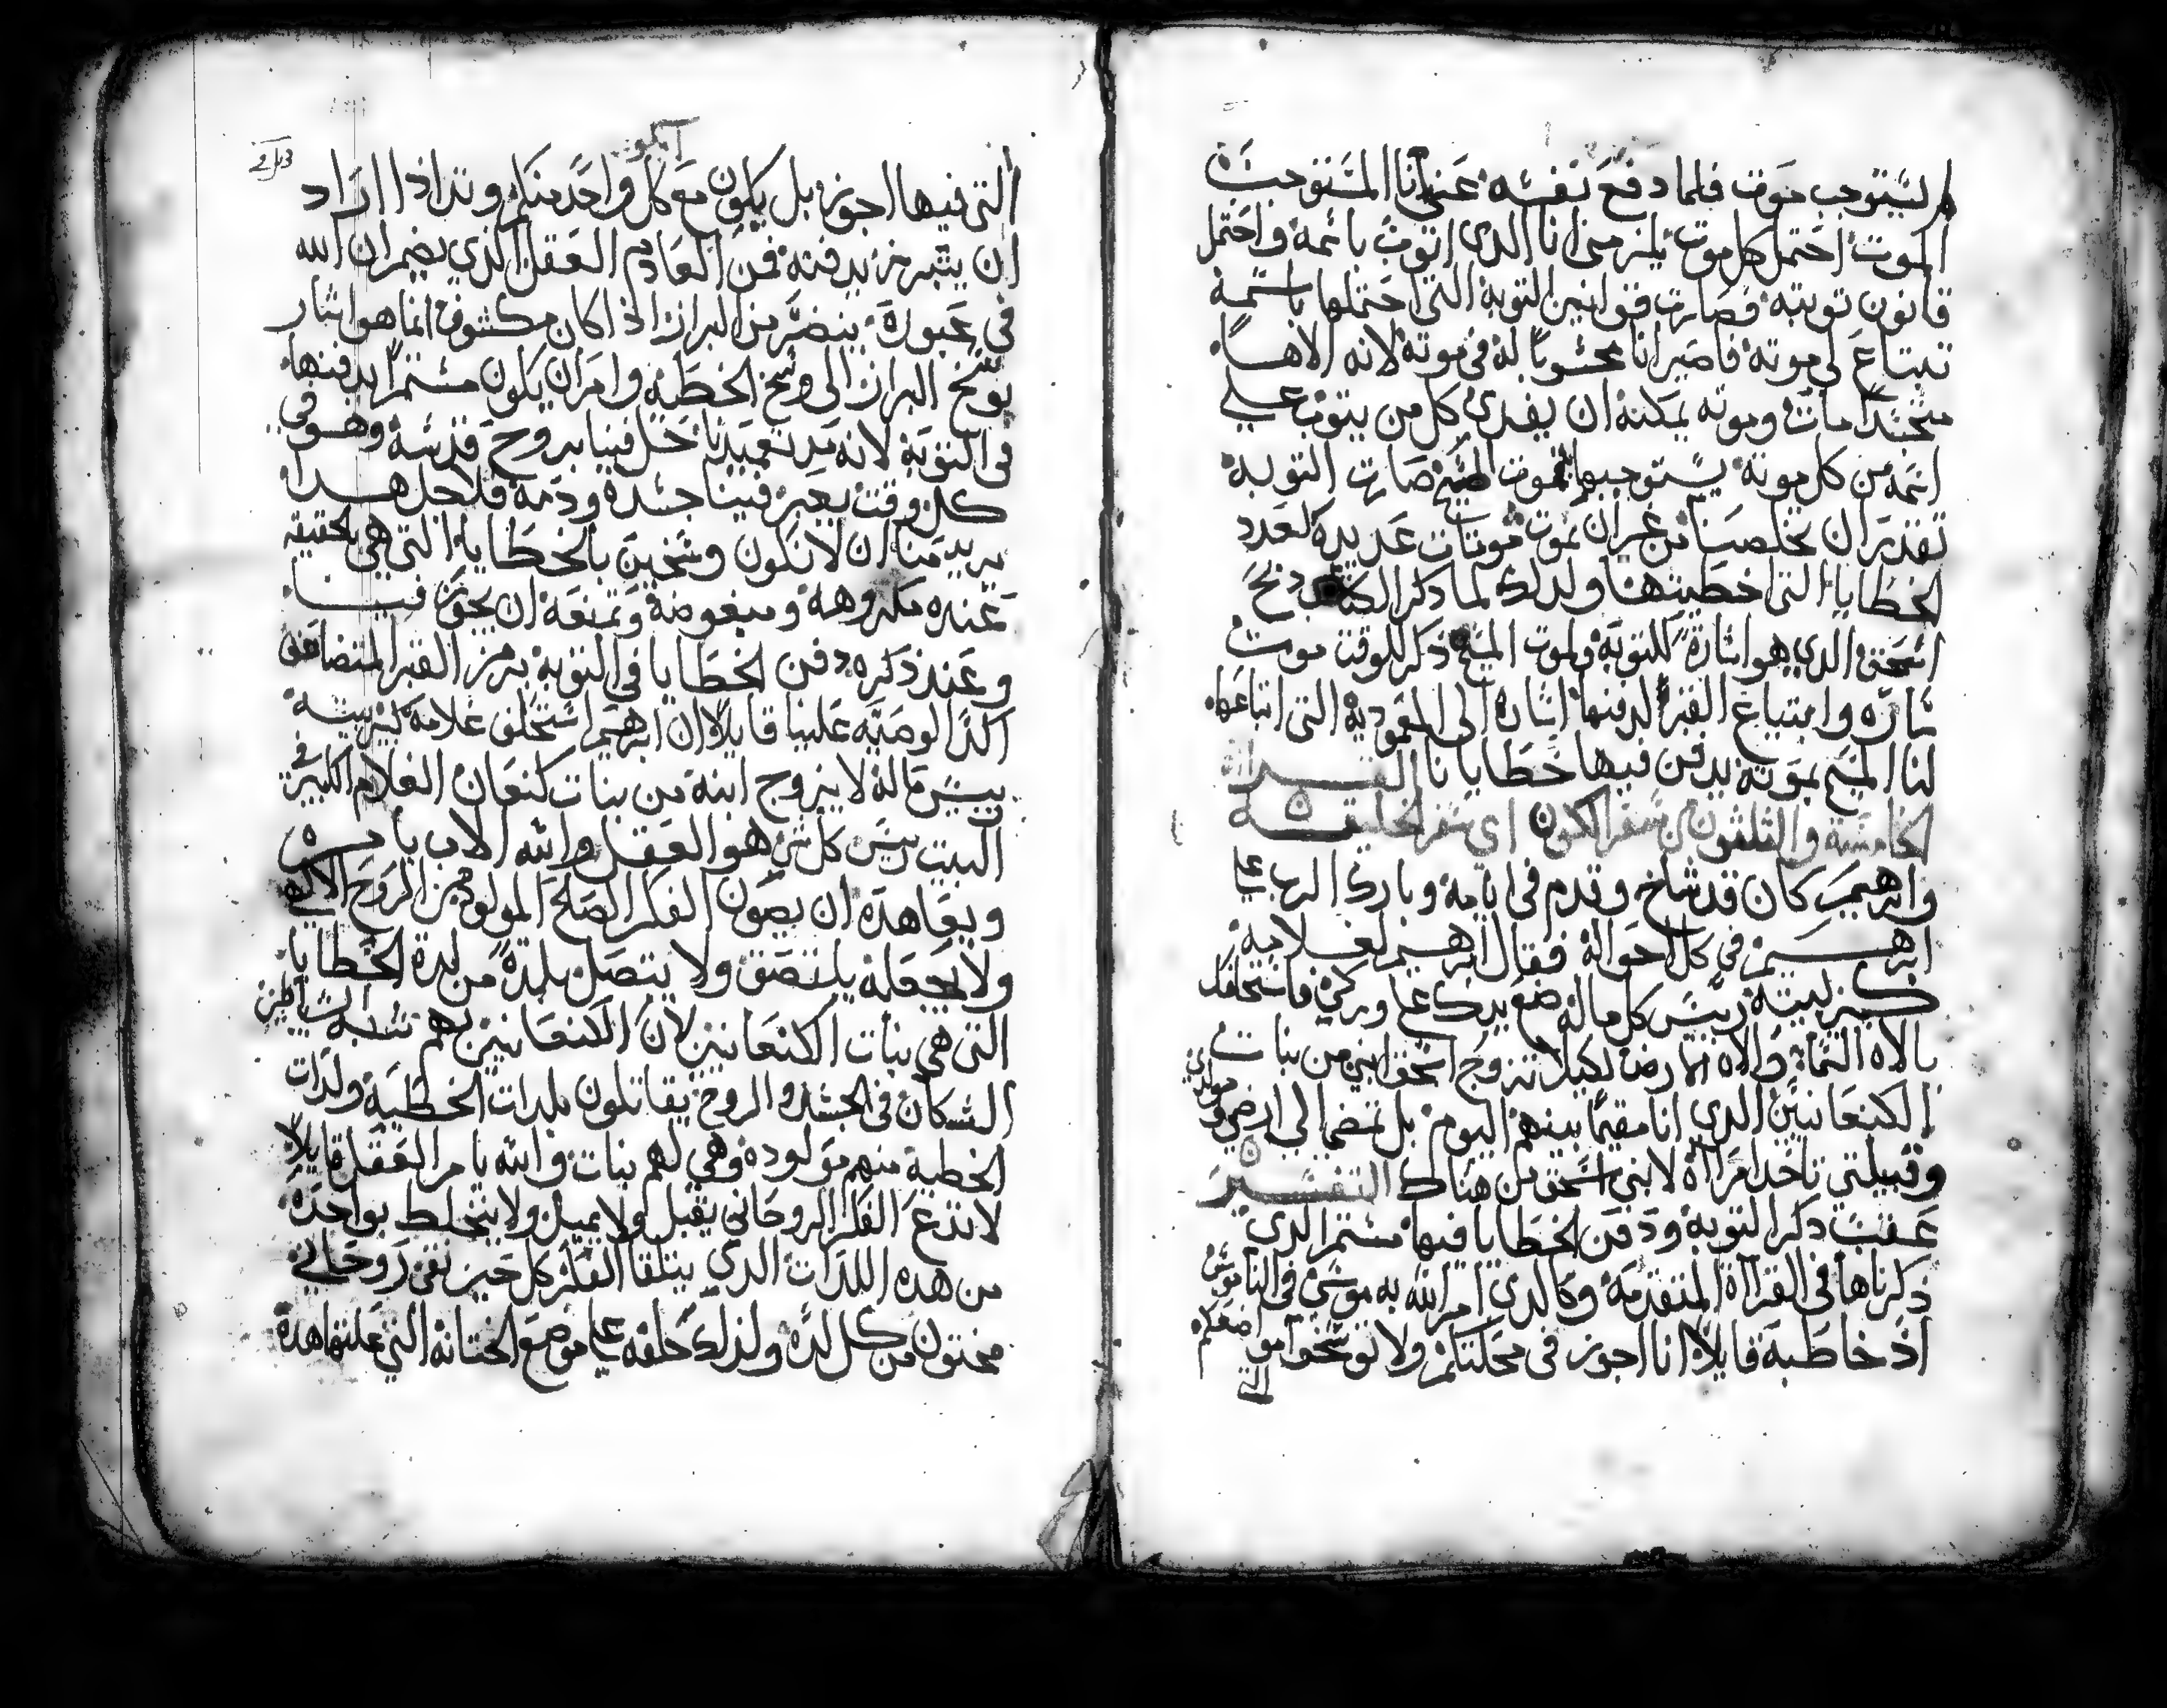 لم يستوجب موت فلما دفع نفسه عني انا المستوجب
الموت احتمل كل موت يلزمني انا الدي اتوب باسمه واحتمل
قانون توبته فصارت قوانين التوبة التي احتملها باسمه
تبتاع لي موته فاصير انا محسوبا له في موته لانه الاها
متجسدا مات وموته يمكنه ان يفدي كل من يتوب علي
اسمه من كل موته يستوجبها بموت المسيح صارت التوبه
تقدر ان تخلصنا من غير ان نموت موتات عديدة لعدد
الخطايا التي اخطيناها ولدلك لما دكر الكتاب دبح
اسحق الدي هو اشارة للتوبة ولموت المسيح ذكر للوقت موت
ساره وابتياع القبر لدفنها اشارة الي المعمودية التي ابتاعها
لنا المسيح بموته يدفن فيها خطايانا القراة
الخامسة والثلثون من سفر الكون اي سفر الخليقة
وابرهيم كان قد شاخ وقدم في ايامه وبارك الرب علي
ابرهيم في كل احواله فقال ابرهيم لغلامه
كبير بيته ريس كل ماله ضع يدك علي وركي فاستحلفك
بالاه السما والاه الارض لكيلا تزوج اسحق ابني من بنات
الكنعانيين الدي انا مقيما بينهم اليوم بل تمضي الي ارضي ومولدي
وقبيلتي تاخد امراة لابني اسحق من هناك التفسير
عقيب دكر التوبة ودفن الخطايا فيها مستمر الدي
ذكرناها في القراة المتقدمة وكالدي امر الله به موسي في الناموس
اذ خاطبه قايلا انا اجوز في محلتكم ولا توسخوا مواضعكم
التي
التي فيها اجوز بل يكون مع كل واحد منكم وتد اذا اراد
ان يتبرز يدفنه فمن العادم العقل الذي يضمر ان الله
في عبوره يتضرر من البراز اذا كان مكشوف انما هو اشار
بوسخ البراز الي وسخ الخطية وامر ان يكون مستمرا يدفنها
في التوبة لانه مد تعميدنا حل فينا بروح قدسه وهو في
كل وقت يعبر فينا جسده ودمه فلاجل هدا
يريد منا ان لا نكون وسخين بالخطايا التي هي بالحقيقه
عنده مكروهة ومبغوضة وتمنعه ان يجوز فينا
وعند ذكره دفن الخطايا في التوبة برمز القبر المتضاعف
اكد الوصيه علينا قايلا ان ابرهيم استحلف غلامه كبير بيته
ريس ماله لا يزوج ابنه من بنات كنعان الغلام الكبير في
البيت ريس كل شي هو العقل والله الاب يامره
ويعاهده ان يصون الفكر الصلح المولود من الروح الالهي
ولا يجعله يلتصق ولا يتصل بلدة من لدة الخطايا
التي هي بنات الكنعانيين لان الكنعانيين بهم شبه الشياطين
السكان في الجسد والروح يقاتلون بلدات الخطية ولدات
الخطية منهم مولوده وهي لهم بنات والله يامر العقل قايلا
لا تدع الفكر الروحاني يقبل ولا يميل ولا يختلط بواحدة
من هده اللدات الدي يتلقا الفكر كل حين نقي روحاني
مختون من كل لده ولذلك حلفه علي موضع الختانة التي علتها هده